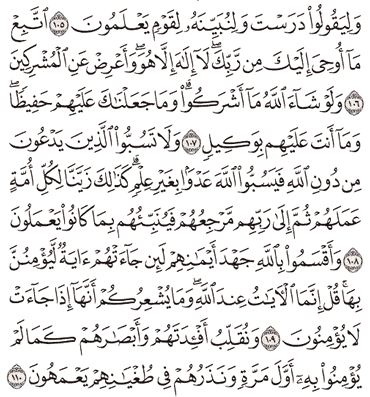 وَلِيَقُولُوا۟ دَرَسْتَ وَلِنُبَيِّنَهُۥ لِقَوْمٍ يَعْلَمُونَ ١٠٥ ٱتَّبِعْ
مَآ أُوحِىَ إِلَيْكَ مِن رَّبِّكَ ۖ لَآ إِلَٰهَ إِلَّا هُوَ ۖ وَأَعْرِضْ عَنِ ٱلْمُشْرِكِينَ
١٠٦ وَلَوْ شَآءَ ٱللَّهُ مَآ أَشْرَكُوا۟ ۗ وَمَا جَعَلْنَٰكَ عَلَيْهِمْ حَفِيظًا ۖ
وَمَآ أَنتَ عَلَيْهِم بِوَكِيلٍ ١٠٧ وَلَا تَسُبُّوا۟ ٱلَّذِينَ يَدْعُونَ
مِن دُونِ ٱللَّهِ فَيَسُبُّوا۟ ٱللَّهَ عَدْوًۢا بِغَيْرِ عِلْمٍ ۗ كَذَٰلِكَ زَيَّنَّا لِكُلِّ أُمَّةٍ
عَمَلَهُمْ ثُمَّ إِلَىٰ رَبِّهِم مَّرْجِعُهُمْ فَيُنَبِّئُهُم بِمَا كَانُوا۟ يَعْمَلُونَ
١٠٨ وَأَقْسَمُوا۟ بِٱللَّهِ جَهْدَ أَيْمَٰنِهِمْ لَئِن جَآءَتْهُمْ ءَايَةٌ لَّيُؤْمِنُنَّ
بِهَا ۚ قُلْ إِنَّمَا ٱلْءَايَٰتُ عِندَ ٱللَّهِ ۖ وَمَا يُشْعِرُكُمْ أَنَّهَآ إِذَا جَآءَتْ
لَا يُؤْمِنُونَ ١٠٩ وَنُقَلِّبُ أَفْـِٔدَتَهُمْ وَأَبْصَٰرَهُمْ كَمَا لَمْ
يُؤْمِنُوا۟ بِهِۦٓ أَوَّلَ مَرَّةٍ وَنَذَرُهُمْ فِى طُغْيَٰنِهِمْ يَعْمَهُونَ ١١٠